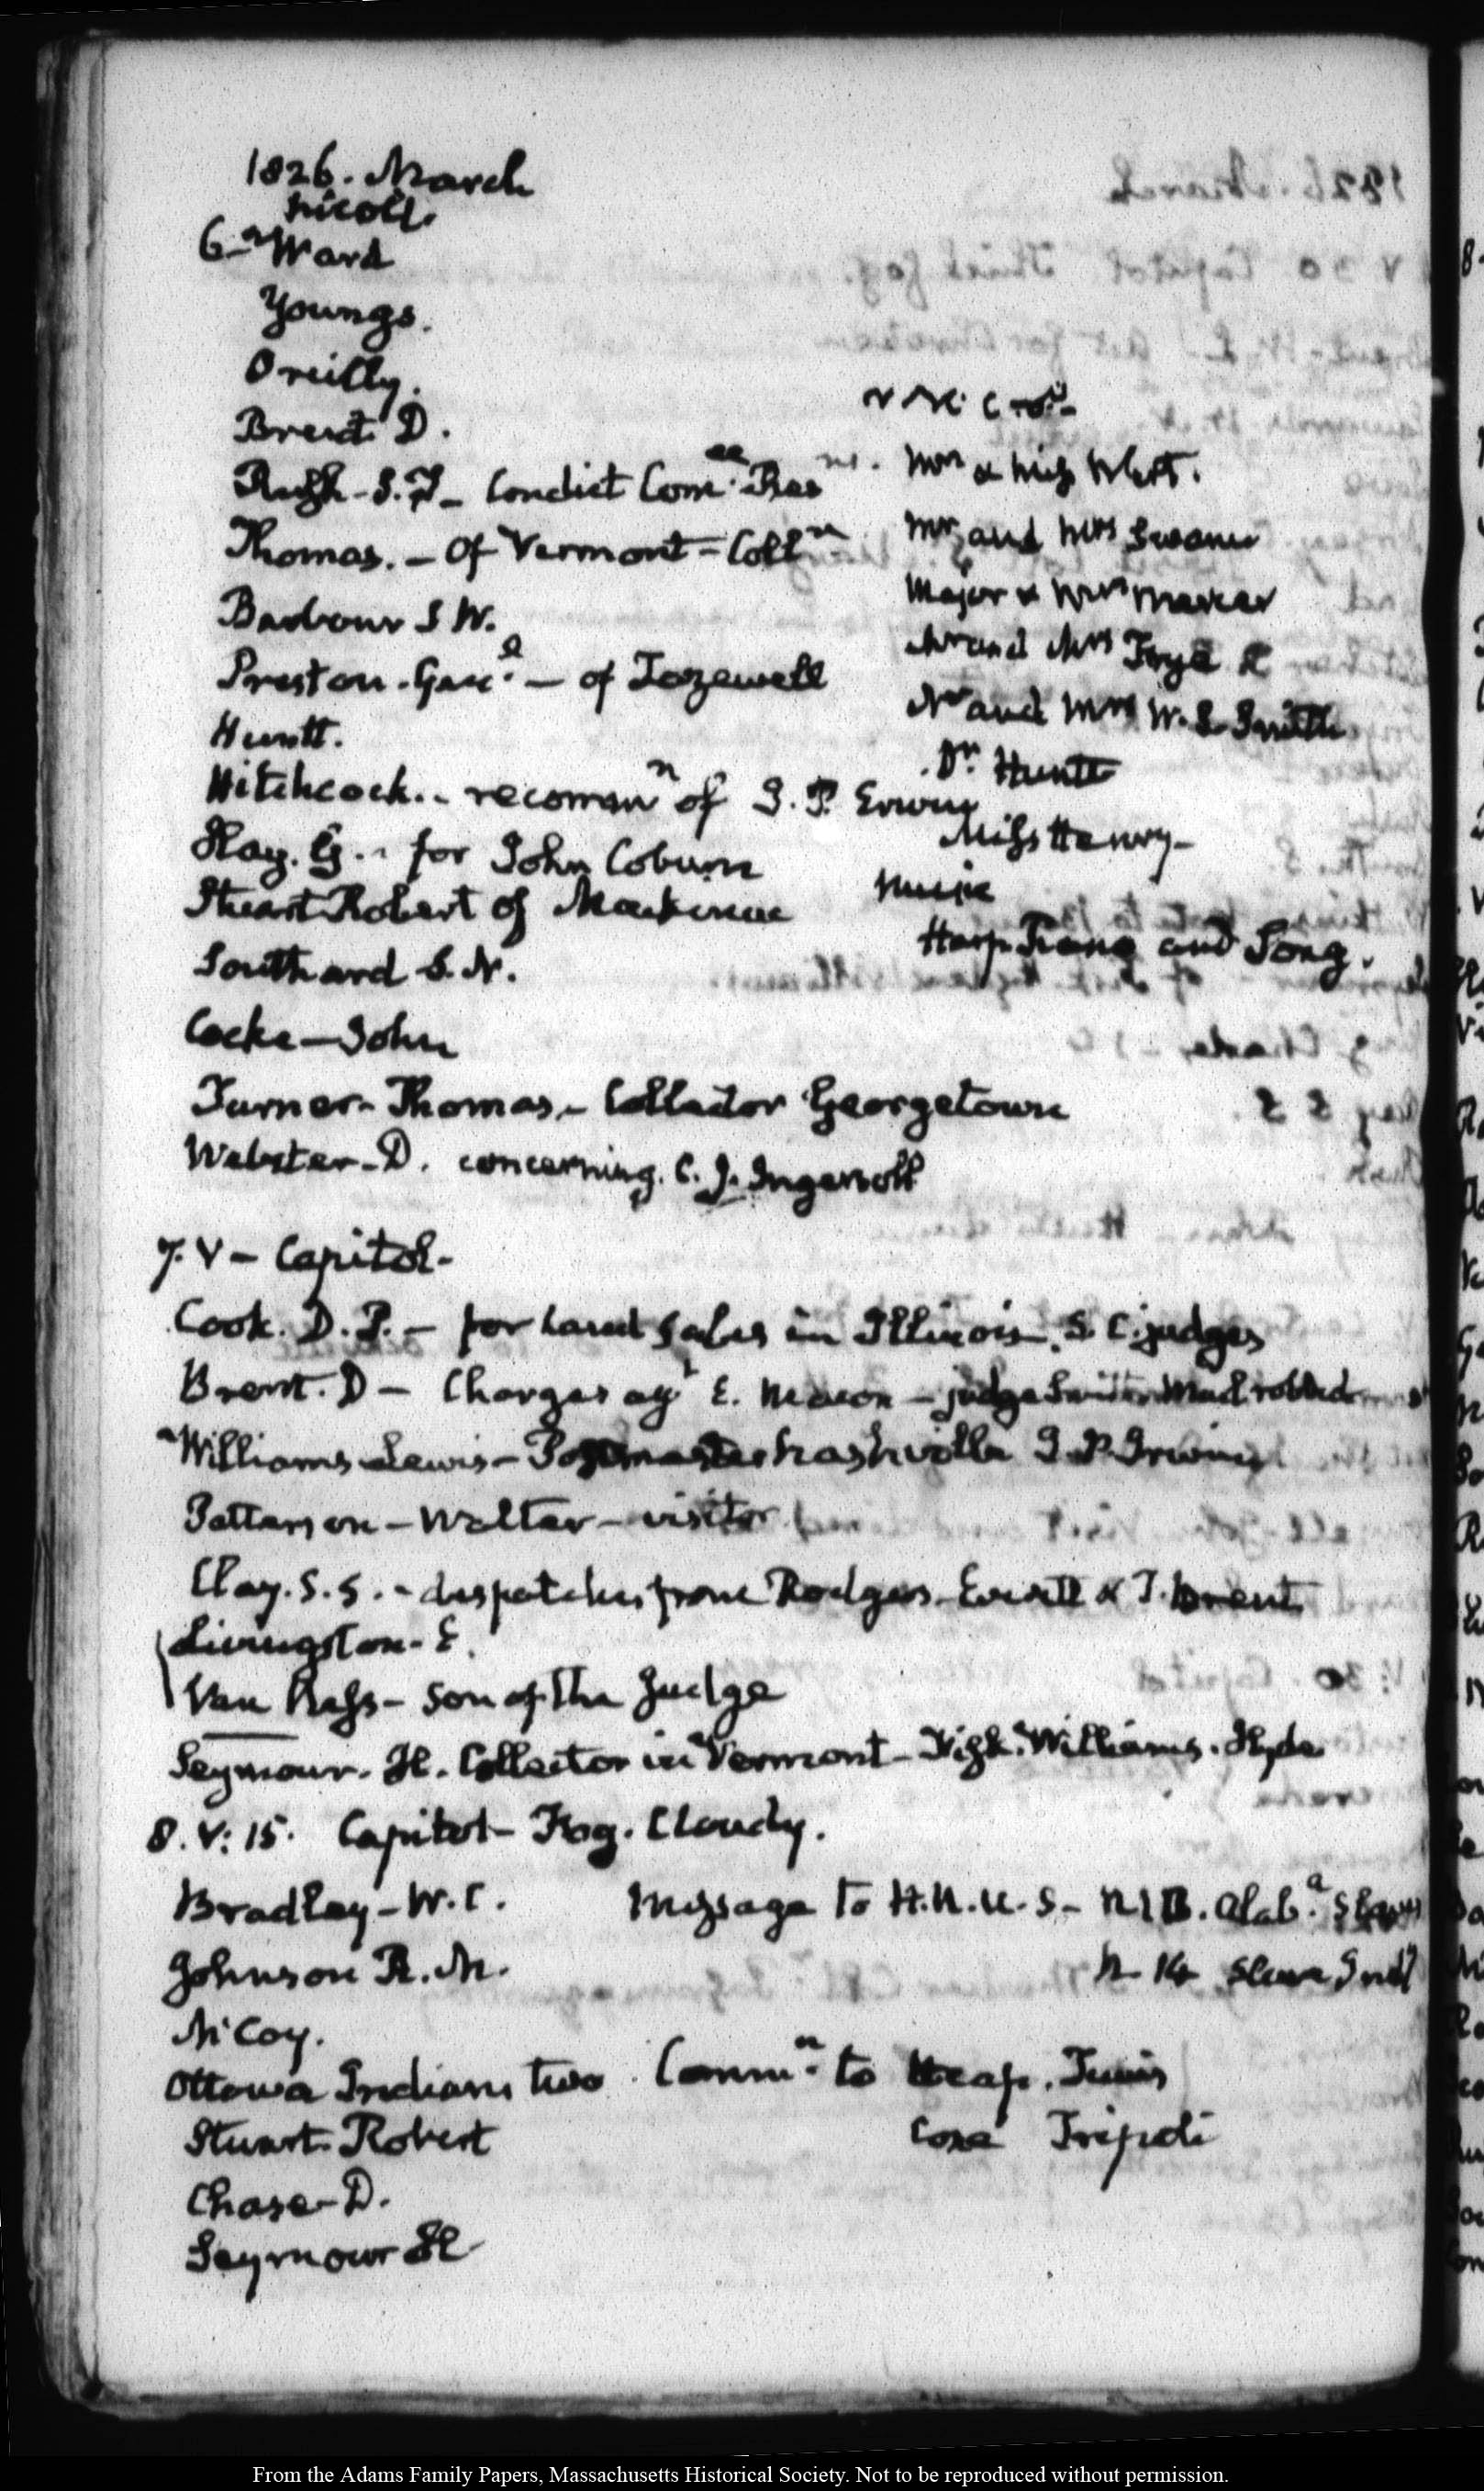 1826. March
Nicoll.
6. Ward
Youngs.
Oreilly.
Brent D.
Rush. S.T. Condict Com.ee
Thomas. — Of Vermont — Coll.n
Barbour S W.
Preston. Gen.l — of Tazewell
Huntt.
Hitchcock. recommn of J. P. Erwin
Hay. G. for John Coburn
Stuart Robert of Mackinac
Southard S. N.
Cocke — John
Turner. Thomas. Collector Georgetown
Webster. D. concerning C. J. Ingersoll
Mrs & Miss
Mr and Mrs
Major & Mrs
Mr and Mrs Frye
Mr and Mrs W. S. Smith
Dr. Huntt
Miss Henry
Music
Harp. Piano and Song.
7. V — Capitol.
Cook. D. P. — for Land Sales in Illinois. S. C. judges
Brent. D — Charges agt E. Macon — judge Smith Mail robbed
Williams Lewis — Postmaster Nashville J. P. Irwin
Patterson — Walter — visitor
Clay. S. S. — despatches from Rodgers. Everett & T. Brent
Livingston. E.
Van Ness — Son of the Judge
Seymour. H. Collector in Vermont — Williams. Hyde
8. V: 15. Capitol — Fog. Cloudy.
Bradley — W. C. Message to H. R. U. S. — Alab.a
Johnson R. M.
McCoy.
Ottowa Indians two. Comm.n to Heap. Tunis
Stuart. Robert Coxe Tripoli
Chase — D.
Seymour H